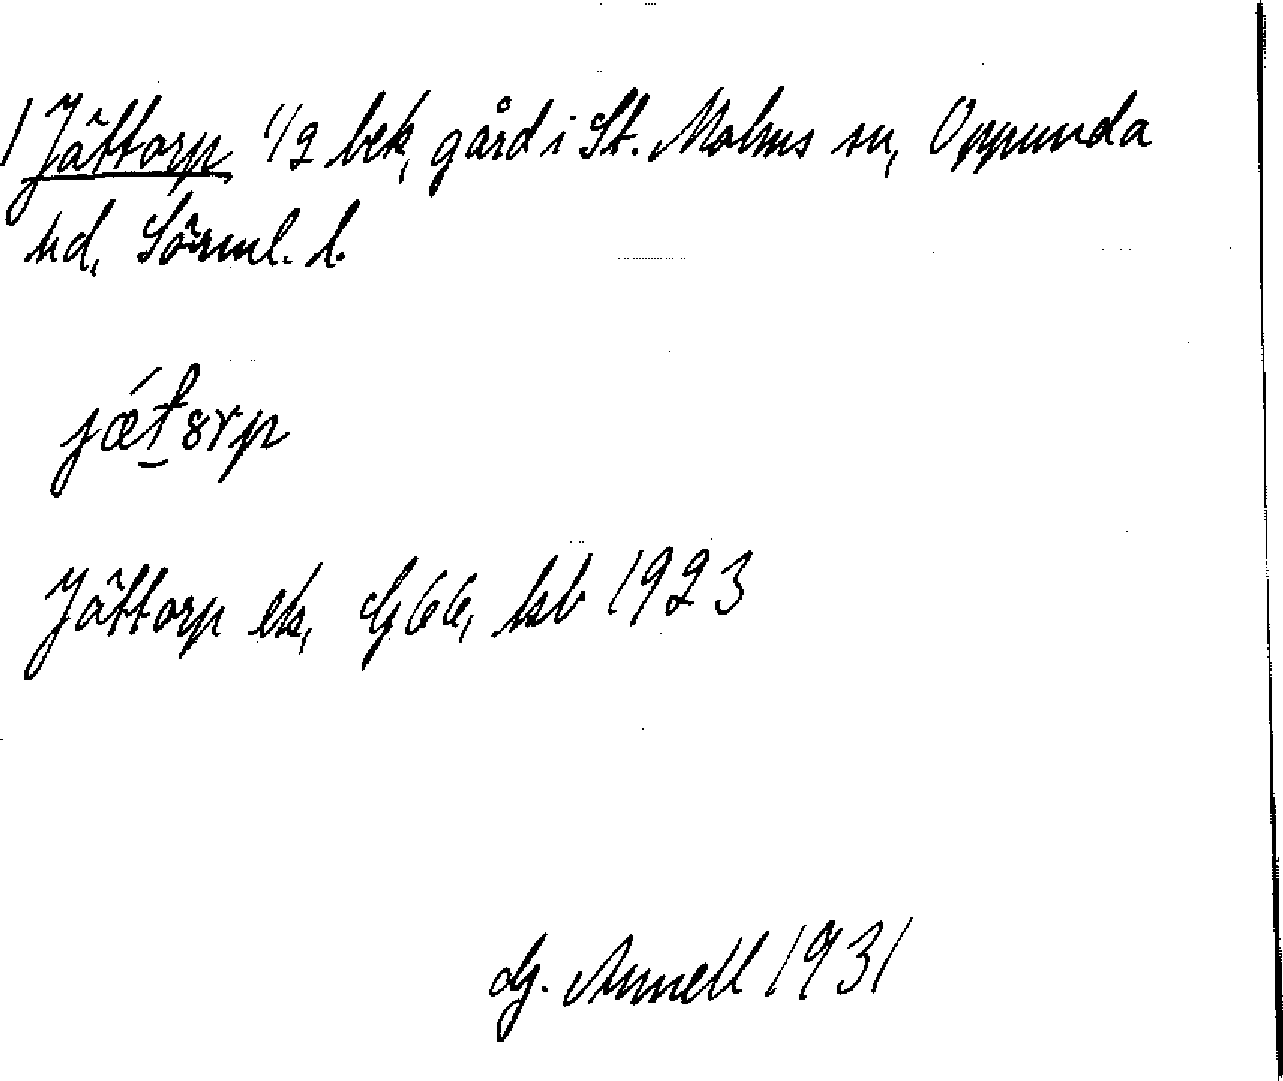 1 Jättorp 1/2 bek, gård i St. Malms sn, Oppunda
hd, Sörml. l.
Jättorp ek, G 66, kb 1923
G. Annell 1931